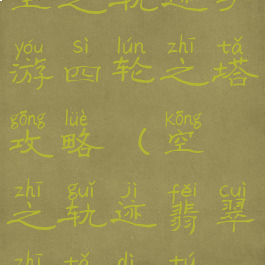 空之轨迹手
yóu sì lún zhī tǎ
游四轮之塔
gōng lüè kōng
攻略（空
zhī guǐ jì fěi cuì
之轨迹翡翠
zhī tǎ dì tú